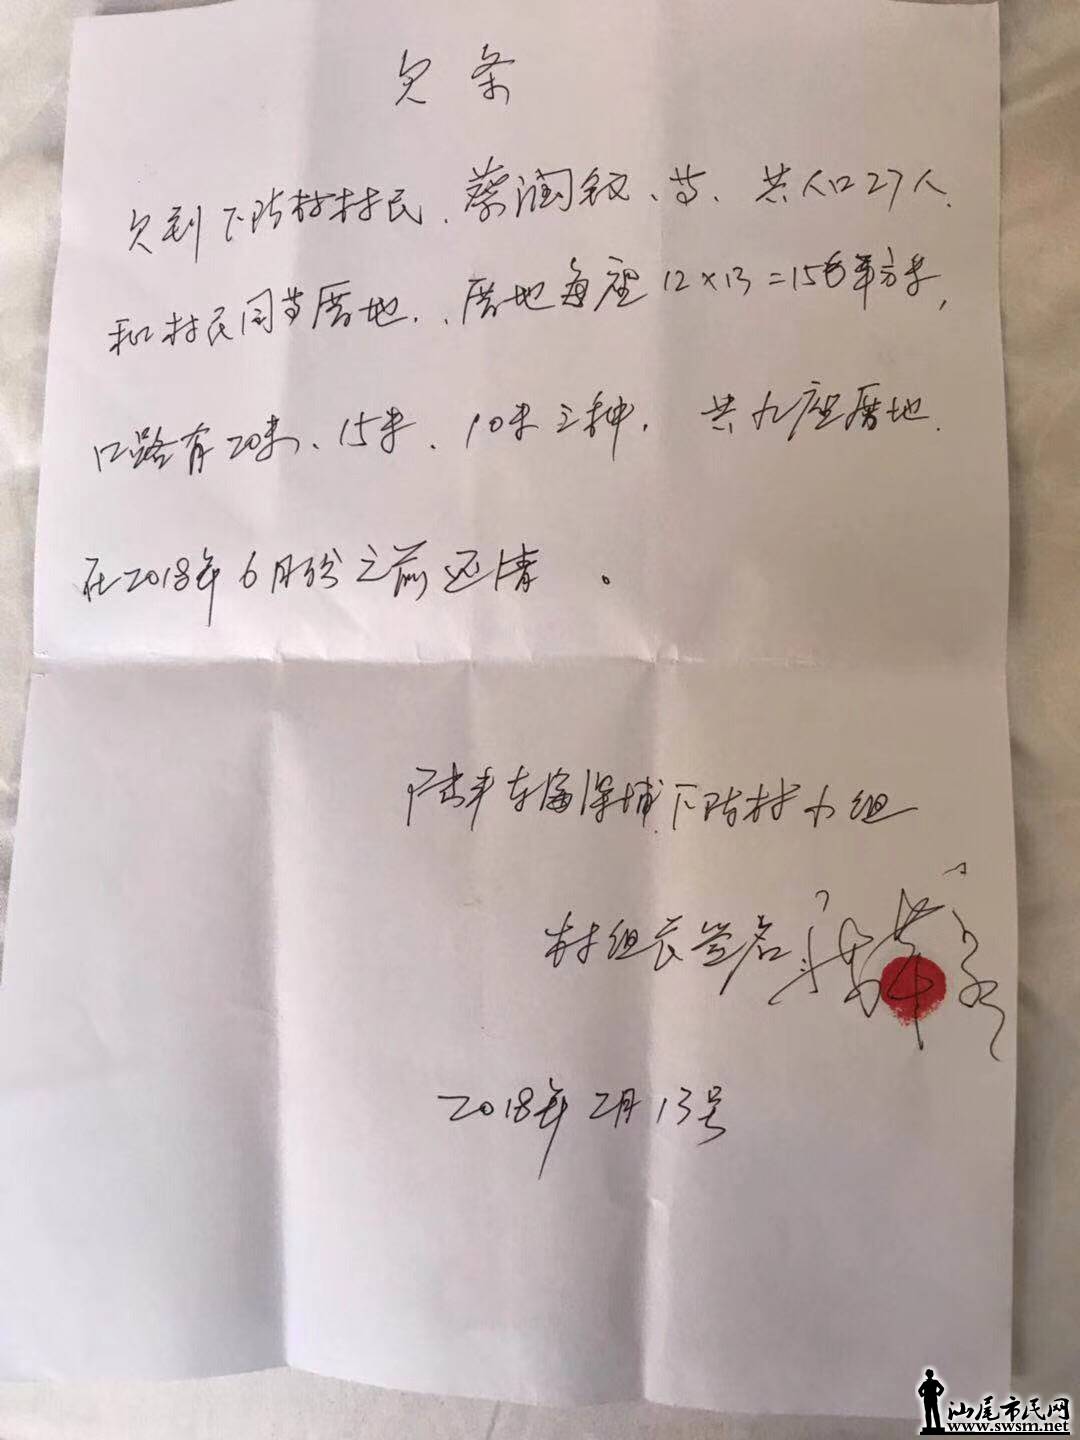 欠条
欠到下陇村村民、蔡润钗、等、共人口27人、
和村民同等厝地、、厝地每座12×13=156平方米,
口路有20米、15米、10米三种, 共九座厝地.
在2018年6月份之前还清。
陆丰东海深埔下陇村小组
村组长签名
2018年2月13号
汕尾市民网
www.swsm.net